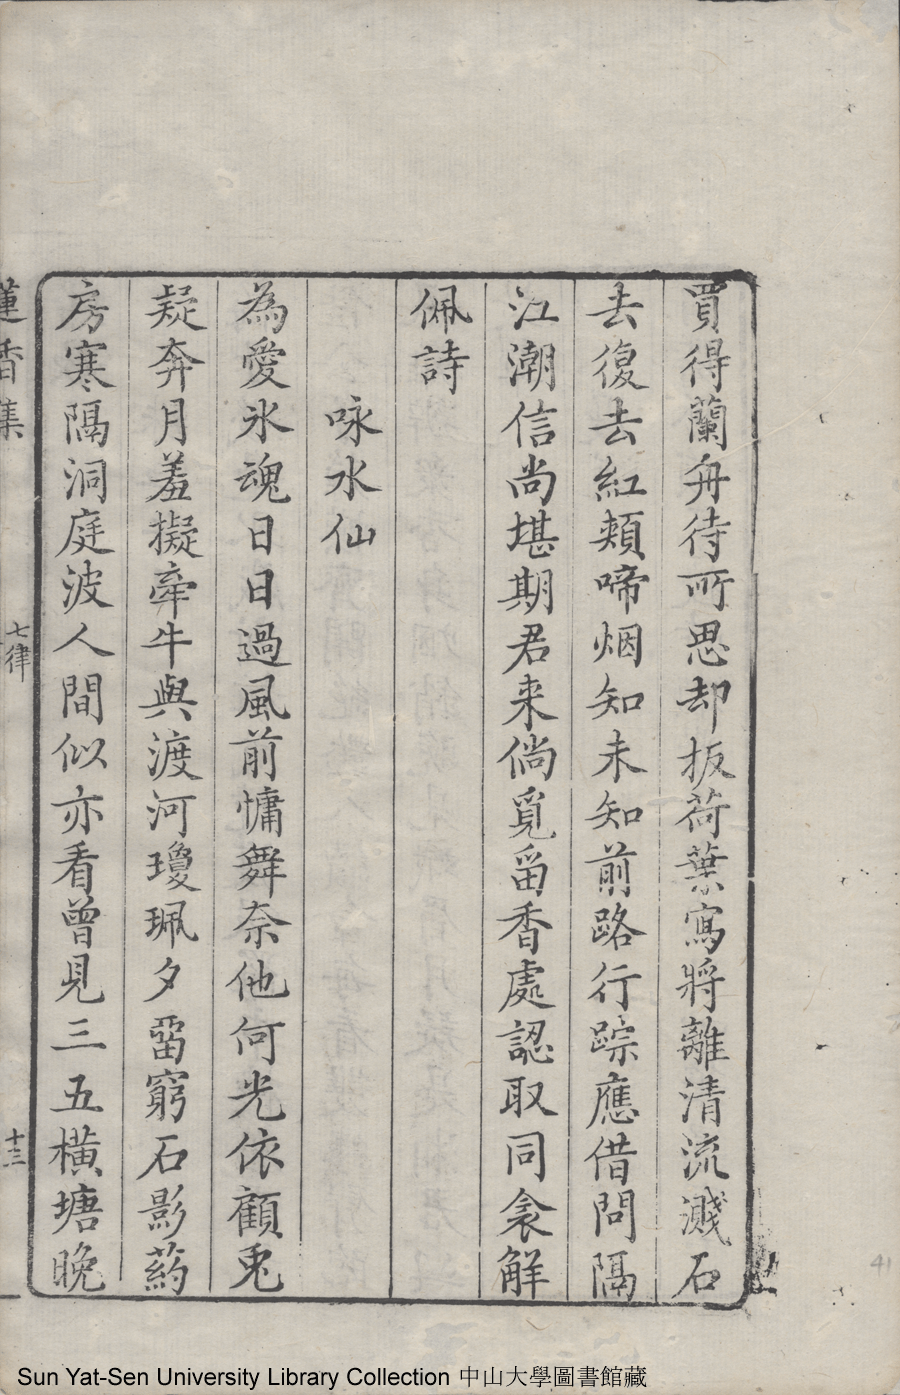 買得蘭舟待所思却扳荷葉寫將離清流濺石
去復去紅頰啼烟知未知前路行踪應借問隔
江潮信尚堪期君来倘覓畱香處認取同衾解
佩詩
咏水仙
為愛氷魂日日過風前慵舞奈他何光依顧兎
疑奔月羞擬牽牛與渡河瓊珮夕畱窮石影葯
房寒隔洞庭波人間似亦看曾見三五橫塘晚
蓮香集
七律
十三
41
Sun Yat-Sen University Library Collection 中山大學圖書館藏